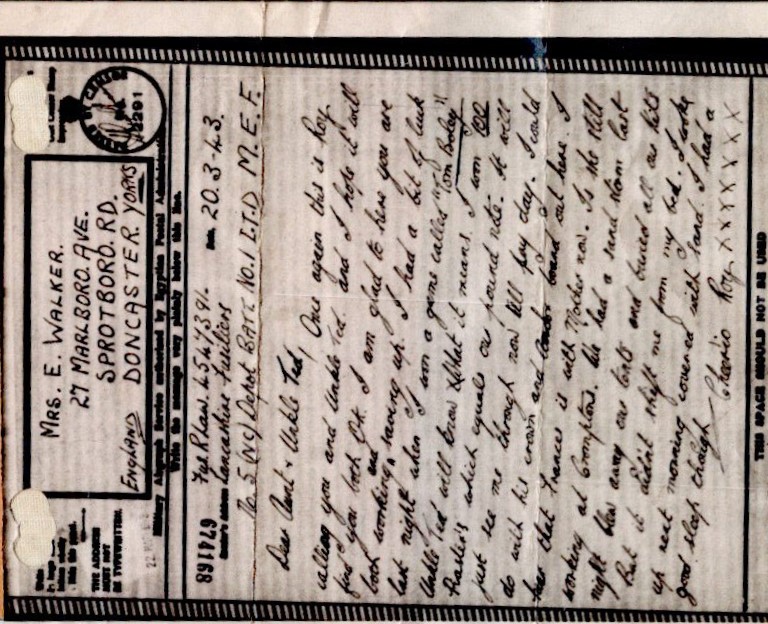 MRS. E. WALKER.
27 MARLBORO. AVE.
SPROTBORO. RD.
DONCASTER YORKS
ENGLAND
THE ADDRESS
MUST NOT
BE TYPEWRITTEN.
22201
Write the message very plainly below this line.
891749
Fus R Law. 4547391.
20.3-43.
Lancashire Fusiliers
No. 5 (NC) Depot BATT NO.1 I.T.D M.E.F.
Dear Aunt & Unkle Ted, Once again this is Roy
calling you and Unkle Ted. and I hope it will
find you both O.K. I am glad to here you are
both working and saveing up. I had a bit of luck
last night when I won a game called
Unkle Ted will know what it means. I won 100
Piasters which equals one pound note. It will
just see me through now till pay day. I could
do with his crown and anchor board out here. I
hear that Frances is with Mother now. Is she still
working at Cromptons. We had a sand storm last
night blew away our tents and buried all our kits
But it didn't shift me from my bed. I woke
up next morning covered with sand. I had a
good sleep though. Cheerio Roy XXXXXXX
THIS SPACE SHOULD NOT BE USED